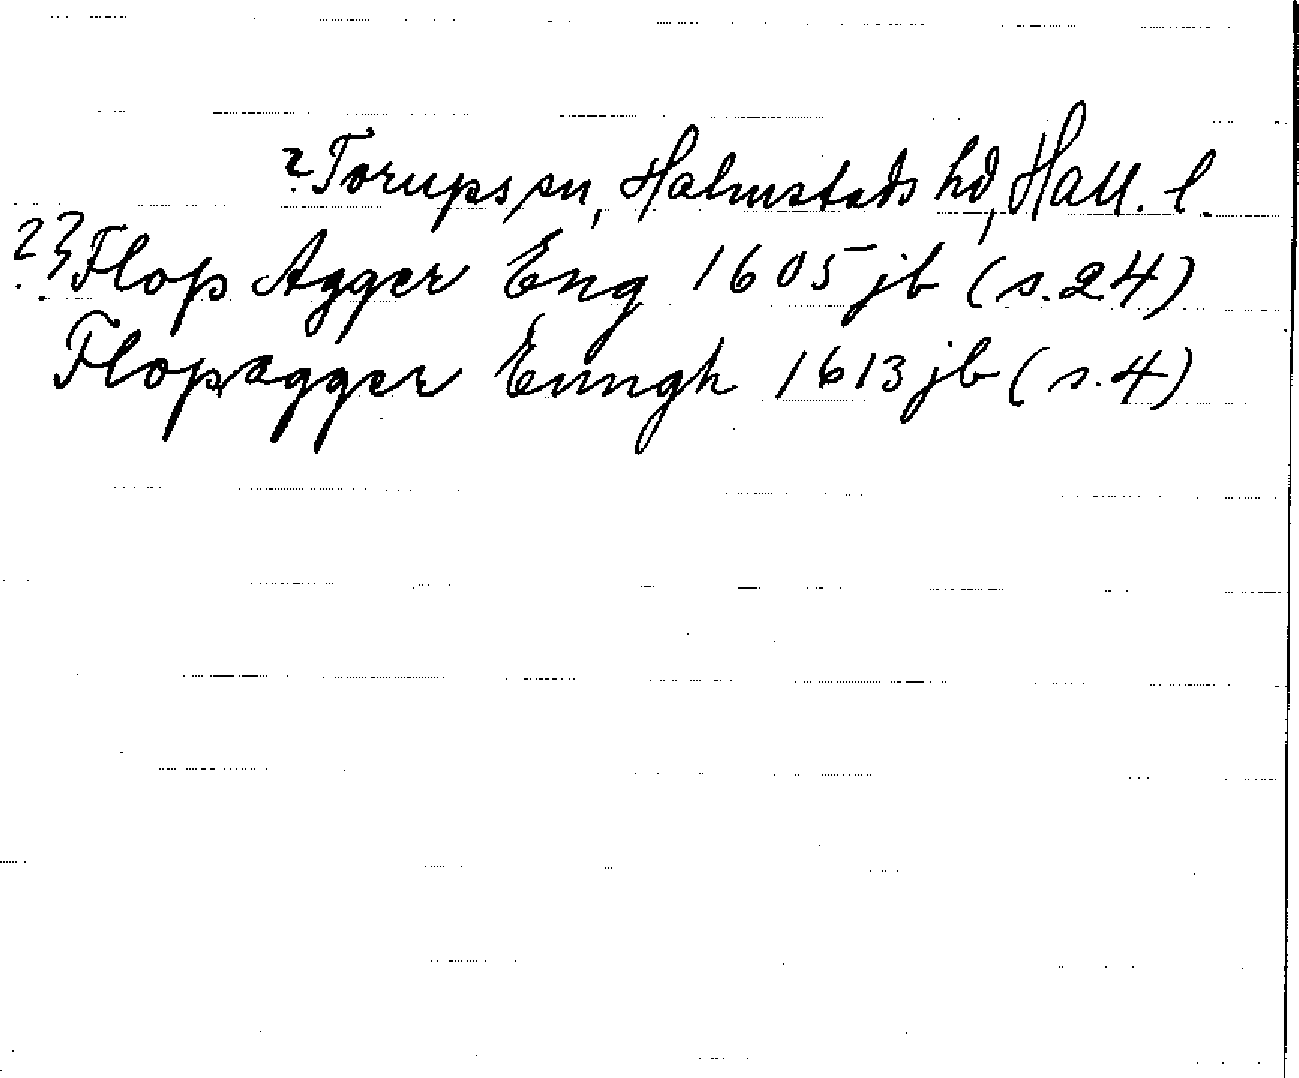 ? Torups sn, Halmstads hd, Hall. l.
?? Flop Agger Eng 1605 jb (s. 24)
Flopagger Enngh 1613 jb (s. 4)